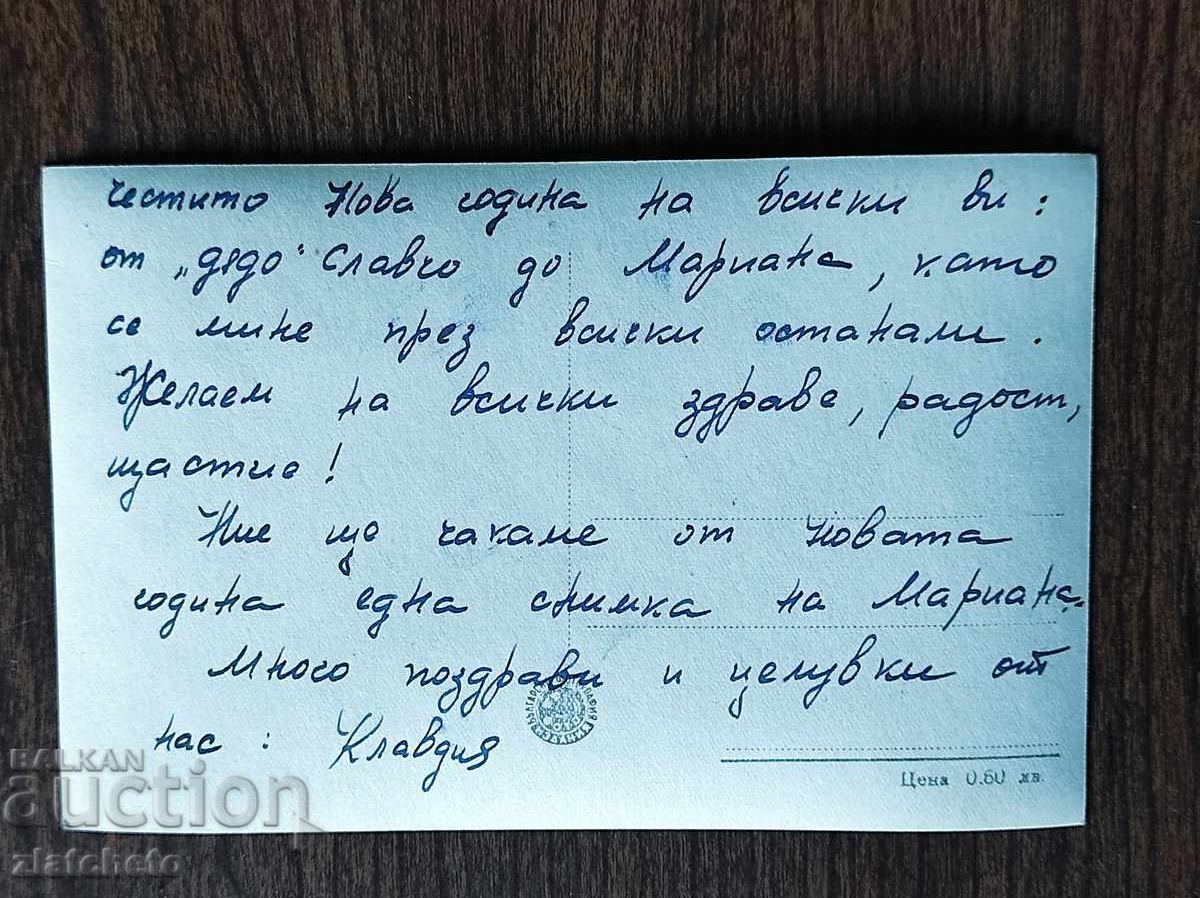 Честито Нова година на всички ви:
от „дядо" Славчо до Мариана, като
се мине през всички останали.
Желаем на всички здраве, радост,
щастие!
Ние ще чакаме от Новата
година една снимка на Мариана.
Много поздрави и целувки от
нас: Клавдия
Цена 0.60 лв.
BALKAN
auction
zlatcheto